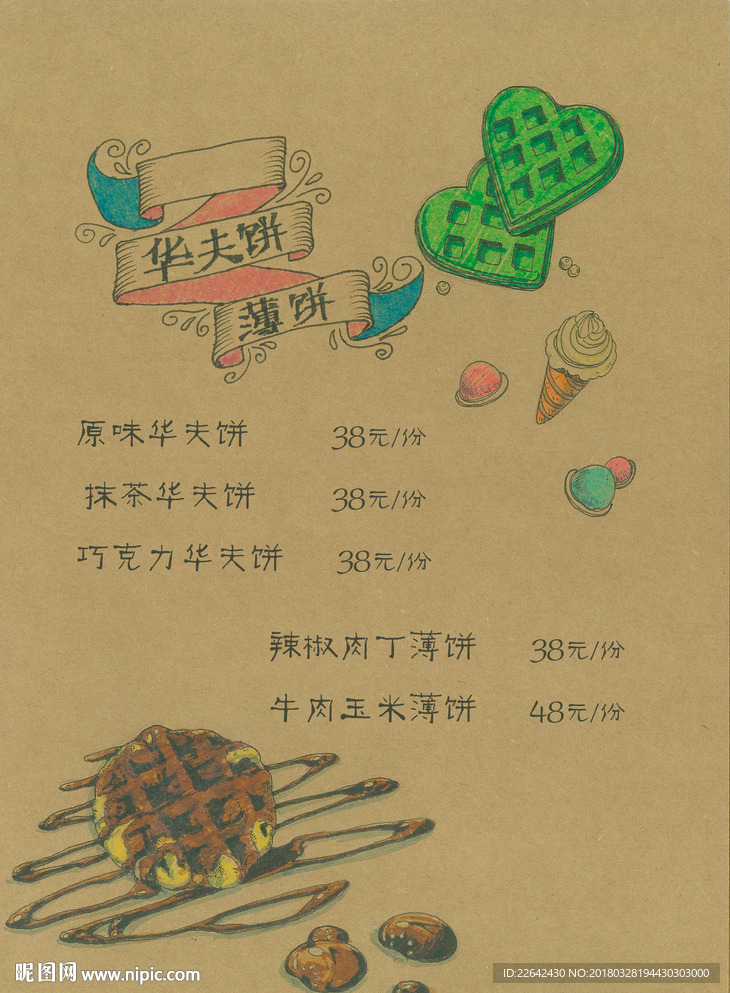 华夫饼
薄饼
原味华夫饼 38元/份
抹茶华夫饼 38元/份
巧克力华夫饼 38元/份
辣椒肉丁薄饼 38元/份
牛肉玉米薄饼 48元/份
昵图网 www.nipic.com
ID:22642430 NO:20180328194430303000